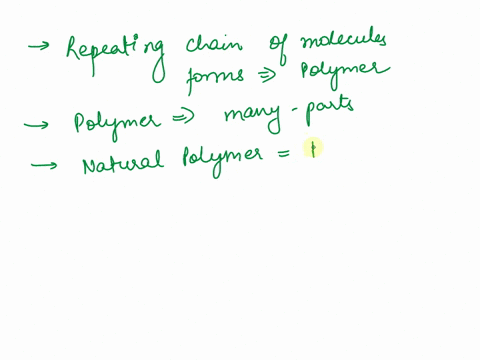 → Repeating chain of molecules
forms ⇒ Polymer
→ Polymer ⇒ many-parts
→ Natural Polymer =